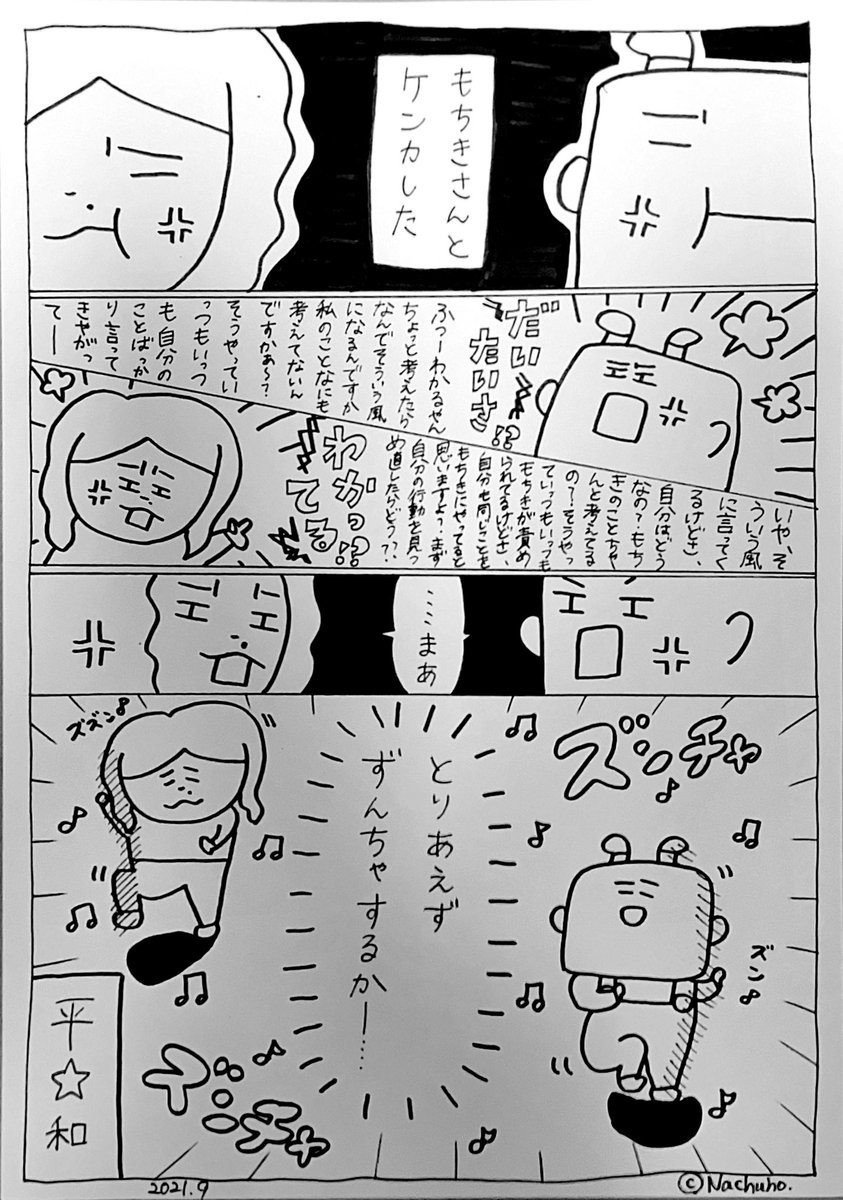 もちきさんと
ケンカした
だい
たいさ!?
ふつーわかるやん
ちょっと考えたら
なんでそういう風
になるんですか
私のことなにも
考えてないん
ですかぁ〜?
そうやってい
っつもいっつ
も自分の
ことばっか
り言って
きやがっ
てー
いや、そ
ういう風
に言ってく
るけどさ、
自分はどう
なの?もち
きのことちゃ
んと考えてる
の?そうやっ
ていっつもいっつも
もちきが責め
られてるけどさ、
自分も同じことを
もちきにやってると
思いますよ?まず
自分の行動を見つ
め直したらどう??
わかっ!?
てる
……まあ
ズンチャ
とりあえず
ずんちゃするかー……
ズズン♪
ズン♪
ズンチャ
平☆和
2021.9
©Nachuho.